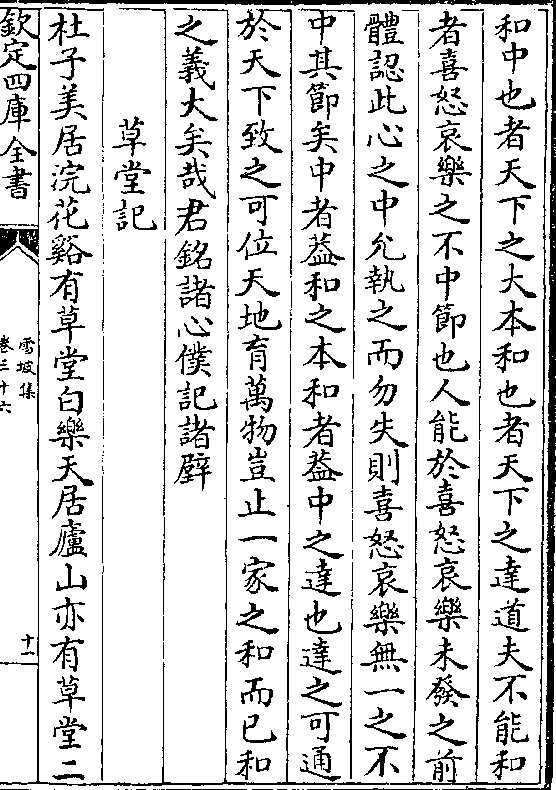 和中也者天下之大本和也者天下之達道夫不能和
者喜怒哀樂之不中節也人能於喜怒哀樂未發之前
體認此心之中允執之而勿失則喜怒哀樂無一之不
中其節矣中者葢和之本和者葢中之達也達之可通
於天下致之可位天地育萬物豈止一家之和而已和
之義大矣哉君銘諸心僕記諸壁
草堂記
杜子美居浣花谿有草堂白樂天居廬山亦有草堂二
欽定四庫全書
雪坡集
卷三十六
十一